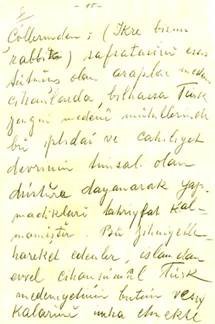 - 15 -
Çöllerinden: (İkre bismi
rabbike) safsatasını esas
tutmuş olan araplar mede
cihanlarda bilhassa Türk
zengin medeni muhitlerinde
bu iptidaî ve cahiliyet
devrinin timsali olan
düstûra dayanarak yap
madıkları tahrifat kal
mamıştır. Bu zihniyetle
hareket edenler, islamdan
evvel cihanşümûl Türk
medeniyetinin bütün vesi
kalarını imha etmekle